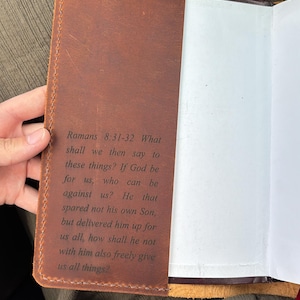 Romans 8:31-32 What
shall we then say to
these things? If God be
for us, who can be
against us? He that
spared not his own Son,
but delivered him up for
us all, how shall he not
with him also freely give
us all things?